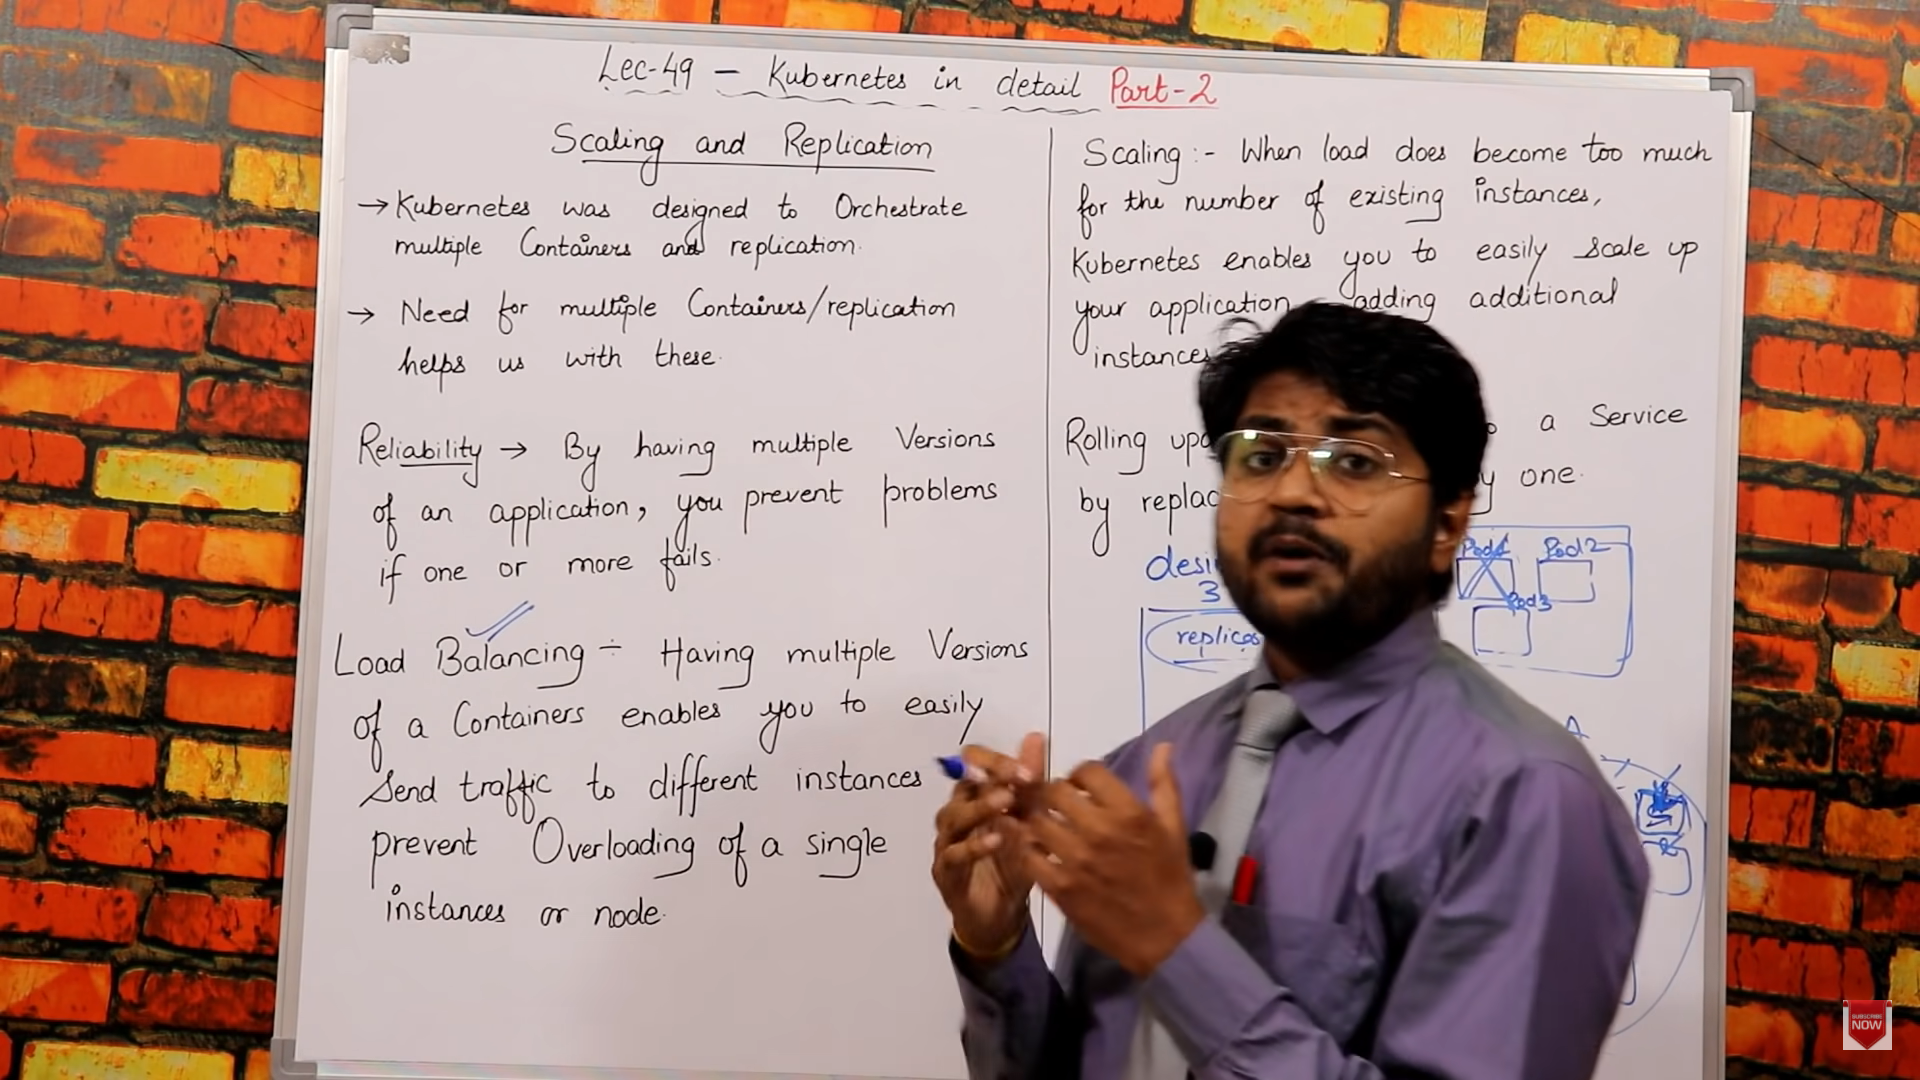 Lec-49 – Kubernetes in detail Part-2
Scaling and Replication
→ Kubernetes was designed to Orchestrate
multiple Containers and replication.
→ Need for multiple Containers/replication
helps us with these.
Reliability → By having multiple Versions
of an application, you prevent problems
if one or more fails.
Load Balancing ÷ Having multiple Versions
of a Containers enables you to easily
Send traffic to different instances
prevent Overloading of a single
instances or node.
Scaling :- When load does become too much
for the number of existing instances,
Kubernetes enables you to easily scale up
your application adding additional
instances
Rolling a Service
by one.
3
replicas
Pod1 Pod2
Pod3
A
SUBSCRIBE
NOW